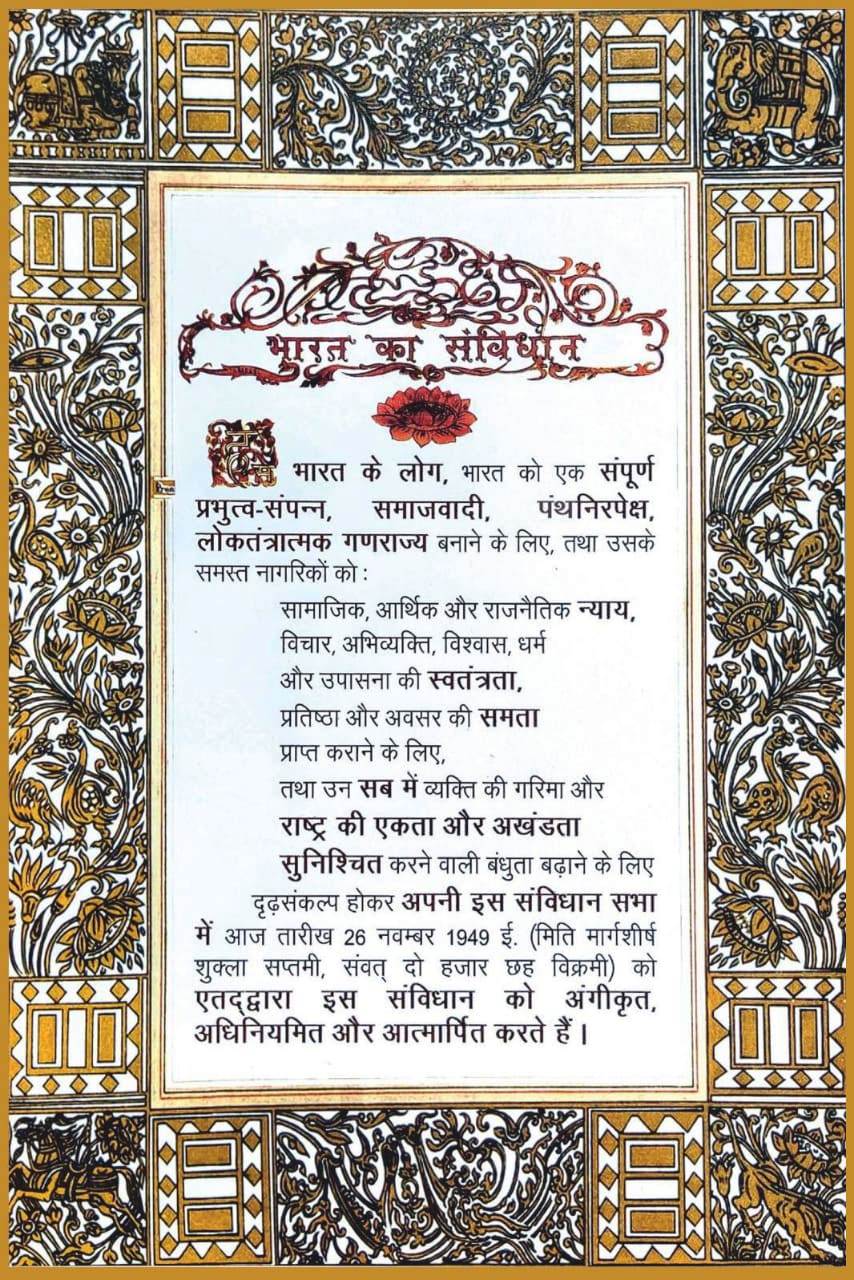 भारत का संविधान
हम भारत के लोग, भारत को एक संपूर्ण
प्रभुत्व-संपन्न, समाजवादी, पंथनिरपेक्ष,
लोकतंत्रात्मक गणराज्य बनाने के लिए, तथा उसके
समस्त नागरिकों को :
सामाजिक, आर्थिक और राजनैतिक न्याय,
विचार, अभिव्यक्ति, विश्वास, धर्म
और उपासना की स्वतंत्रता,
प्रतिष्ठा और अवसर की समता
प्राप्त कराने के लिए,
तथा उन सब में व्यक्ति की गरिमा और
राष्ट्र की एकता और अखंडता
सुनिश्चित करने वाली बंधुता बढ़ाने के लिए
दृढ़संकल्प होकर अपनी इस संविधान सभा
में आज तारीख 26 नवम्बर 1949 ई. (मिति मार्गशीर्ष
शुक्ला सप्तमी, संवत् दो हजार छह विक्रमी) को
एतद्द्वारा इस संविधान को अंगीकृत,
अधिनियमित और आत्मार्पित करते हैं।